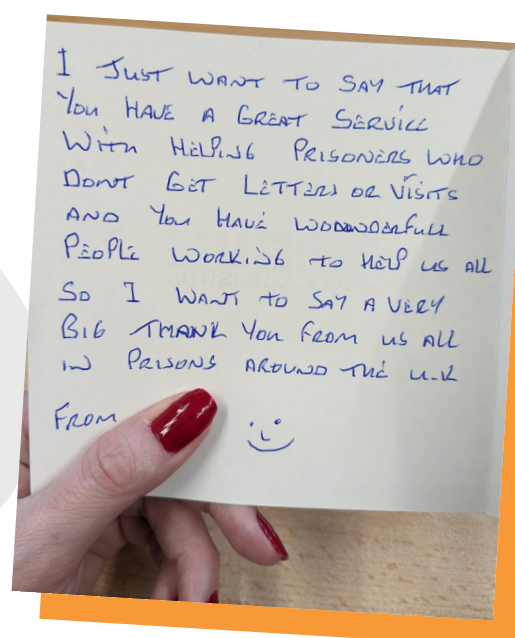 I JUST WANT TO SAY THAT
YOU HAVE A GREAT SERVICE
WITH HELPING PRISONERS WHO
DONT GET LETTERS OR VISITS
AND YOU HAVE WOODWDERFULL
PEOPLE WORKING TO HELP US ALL
SO I WANT TO SAY A VERY
BIG THANK YOU FROM US ALL
IN PRISONS AROUND THE U.K
FROM